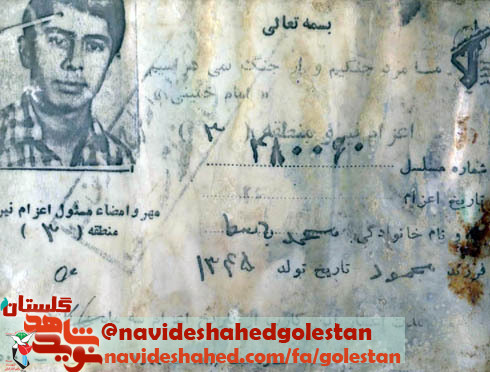 بسمه تعالی
ما مرد جنگیم و از جنگ نمی هراسیم
« امام خمینی »
اعزام نیرو منطقه ( ۳ )
شماره مسلسل ۴۸۰۰۶۰
تاریخ اعزام
و نام خانوادگی: محمد باسط
فرزند محمود تاریخ تولد ۱۳۴۵
مهر و امضاء مسئول اعزام نیر
منطقه ( ۳ )
گلستان
نوید شاهد
@navideshahedgolestan
navideshahed.com/fa/golestan